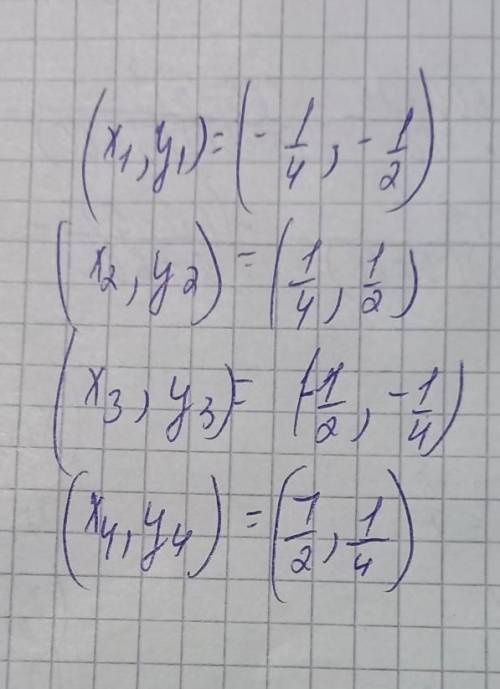 (x₁, y₁) = (-1/4, -1/2)
(x₂, y₂) = (1/4, 1/2)
(x₃, y₃) = (-1/2, -1/4)
(x₄, y₄) = (1/2, 1/4)